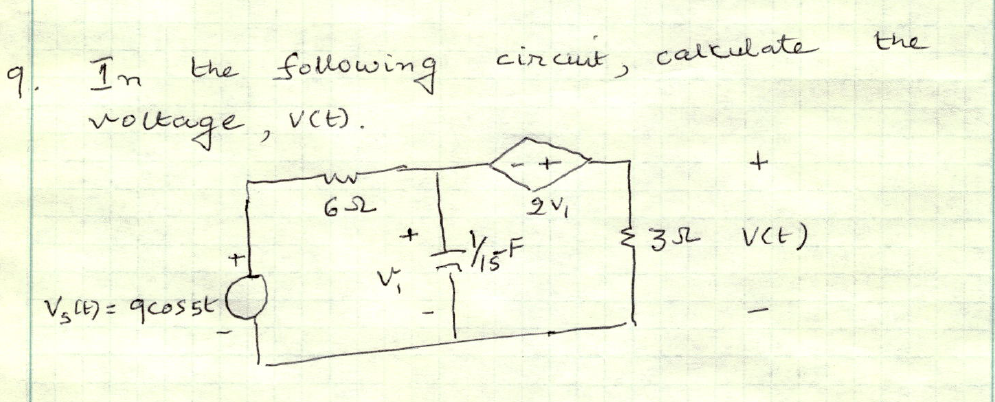 9. In the following circuit, calculate the
voltage, V(t).
- +
+
6Ω
2V₁
+
1/15 F
3Ω
V(t)
+
V₁
Vs(t) = 9cos5t
-
-
-